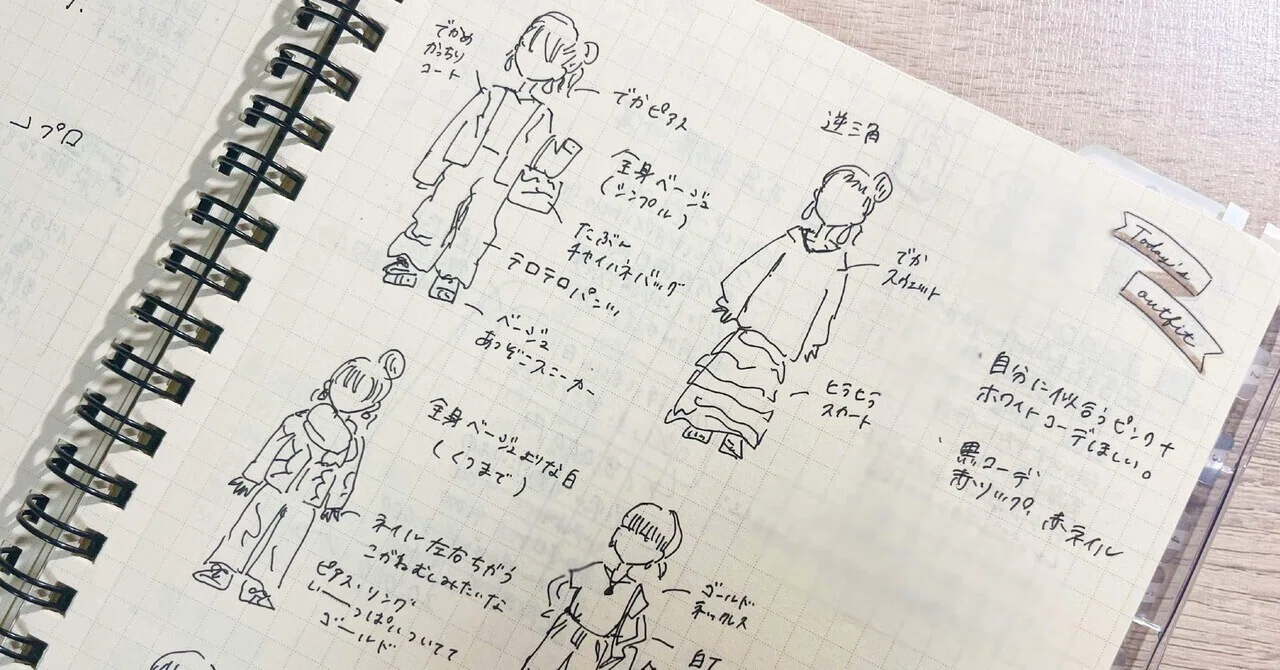 でかめ
かっちり
コート
でかピアス
全身ベージュ
(シンプル)
たぶん
チャイハネバッグ
テロテロパンツ
ベージュ
あつぞこスニーカー
逆三角
でか
スウェット
ヒラヒラ
スカート
Today's
outfit
自分に似合うピンク+
ホワイトコーデほしい。
黒コーデ
赤リップ、赤ネイル
全身ベージュよりな白
(くつまで)
ネイル左右ちがう
こがねむしみたいな
ピアス・リング
いーっぱいついてて
ゴールド
ゴールド
ネックレス
白T
プロ